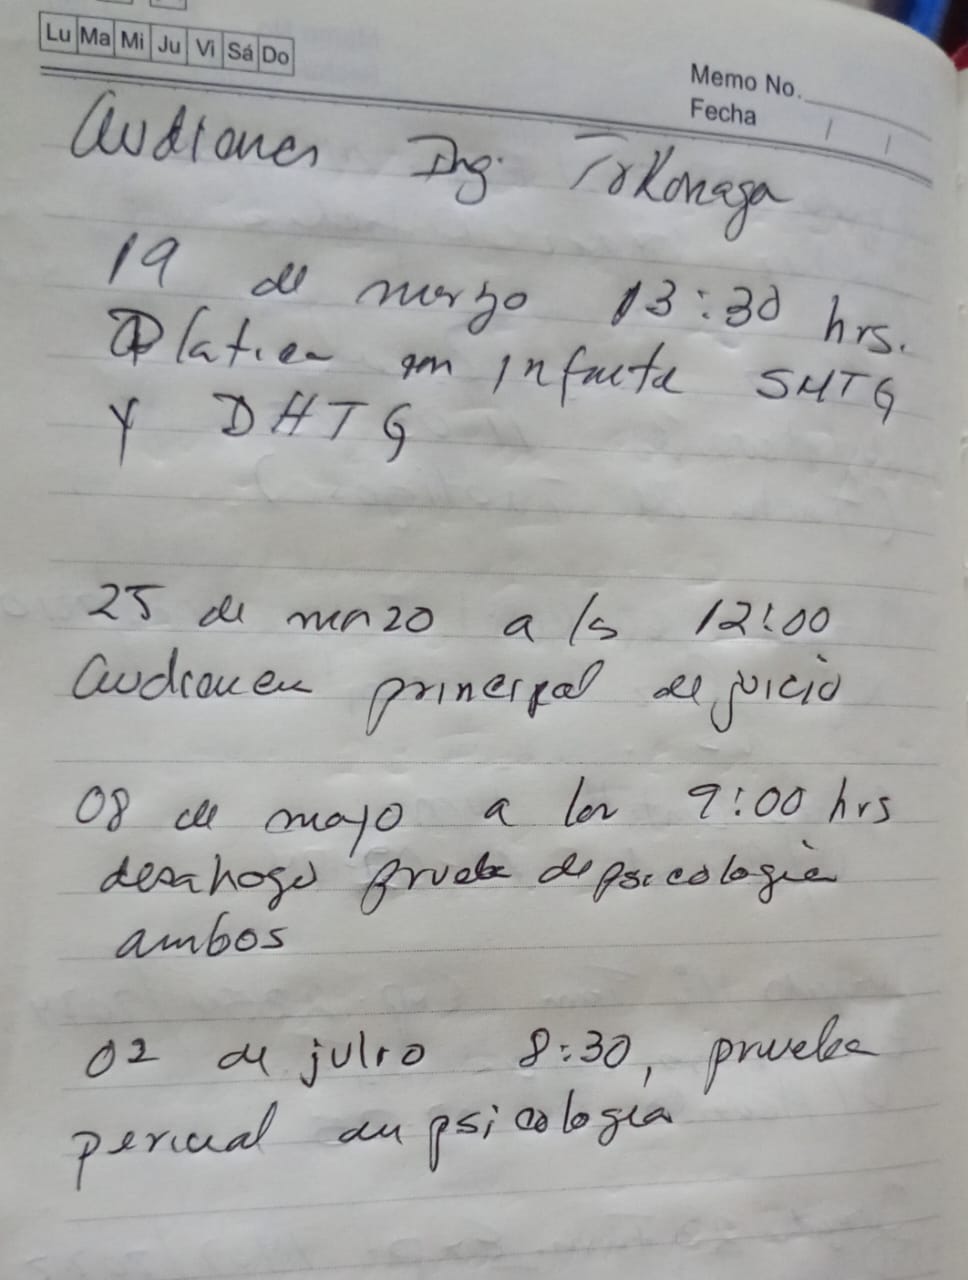 Lu Ma Mi Ju Vi Sá Do
Memo No.
Fecha / /
Audiones Ing. Tokonaga
19 de marzo 13:30 hrs.
Platica con infacta SMTG
Y DHTG
25 de marzo a ls 12:00
Audioncu principal de juicio
08 de mayo a los 9:00 hrs
desahogo prueba de psicologia
ambos
02 de julio 8:30, prueba
pericial en psicologia